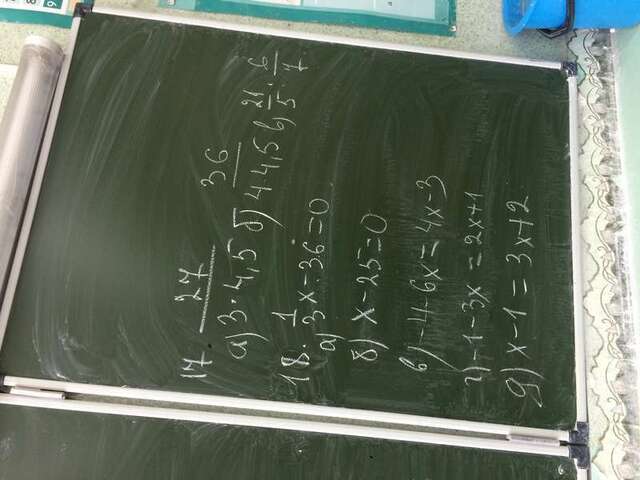 17 27 36
а) 3·4,5 б) 4·4,5 в) 21/5 : 6/7
18. 
а) 1/3 x - 36 = 0
б) x - 25 = 0
в) -4 - 6x = 4x - 3
г) -1 - 3x = 2x + 1
д) x - 1 = 3x + 2